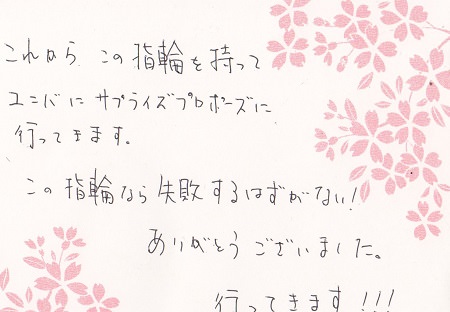 これから この指輪を持って
ユニバにサプライズプロポーズに
行ってきます。
この指輪なら失敗するはずがない!
ありがとうございました。
行ってきます!!!